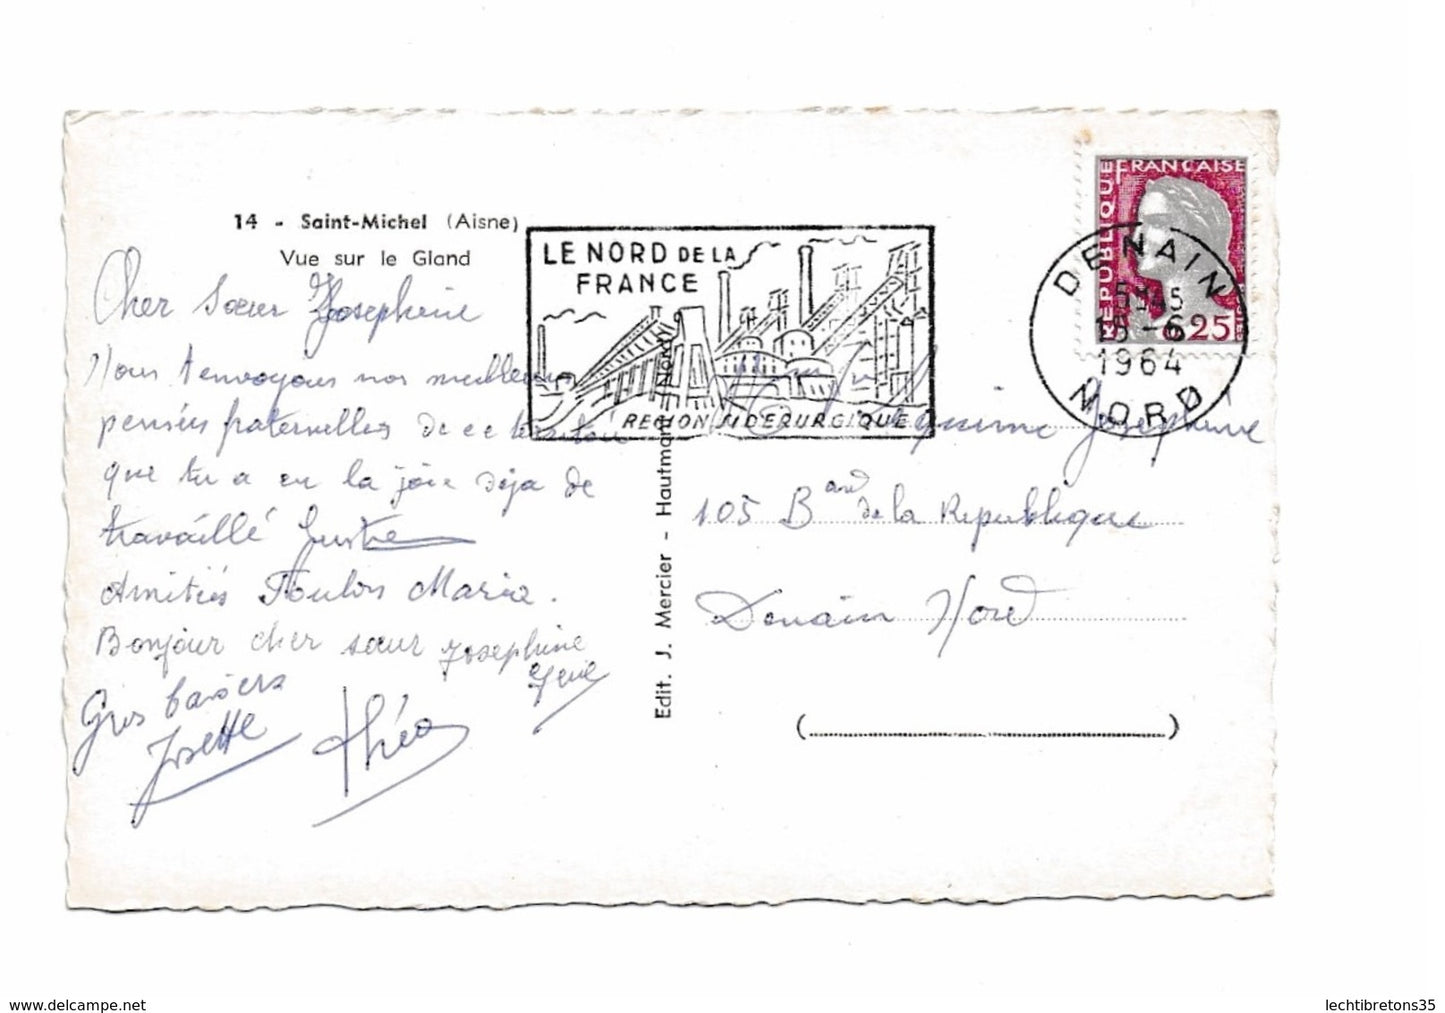 14 - Saint-Michel (Aisne)
Vue sur le Gland
Cher Sœur Josephine
Nous t envoyons nos meilleures
pensées fraternelles de ce
que tu a eu la joie déja de
travaillé
Amitiés Toulon Maria.
Bonjour cher sœur Josephine
Gros baisers
Josette
théo
Edit. J. Mercier - Hautmont (Nord)
LE NORD DE LA
FRANCE
REGION SIDERURGIQUE
REPUBLIQUE FRANCAISE
0,25
DENAIN
15 -6
1964
NORD
Josephine
105 B de la Republique
Denain Nord
(                    )
delcampe.net
lechtibretons35